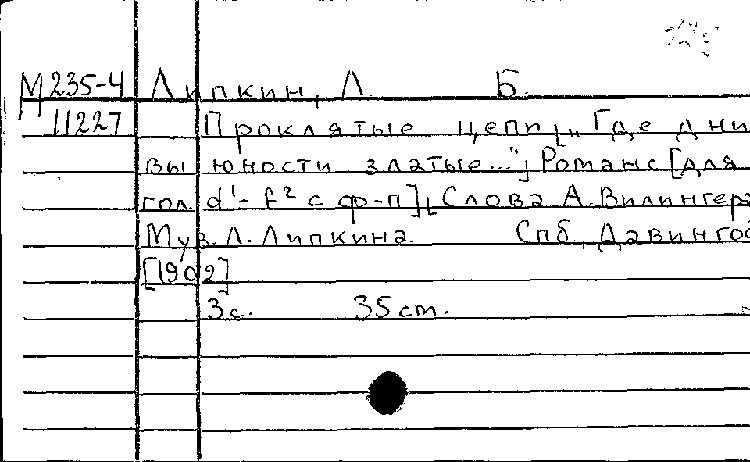 М 235-4 Липкин, Л. Б.
11227 Проклятые цепи „Где дни
вы юности златые..." Романс [для
гол. d¹- f² с ф-п] Слова А. Вилингера
Муз. Л. Липкина. Спб, Давингоф
[1902]
3 с. 35 cm.